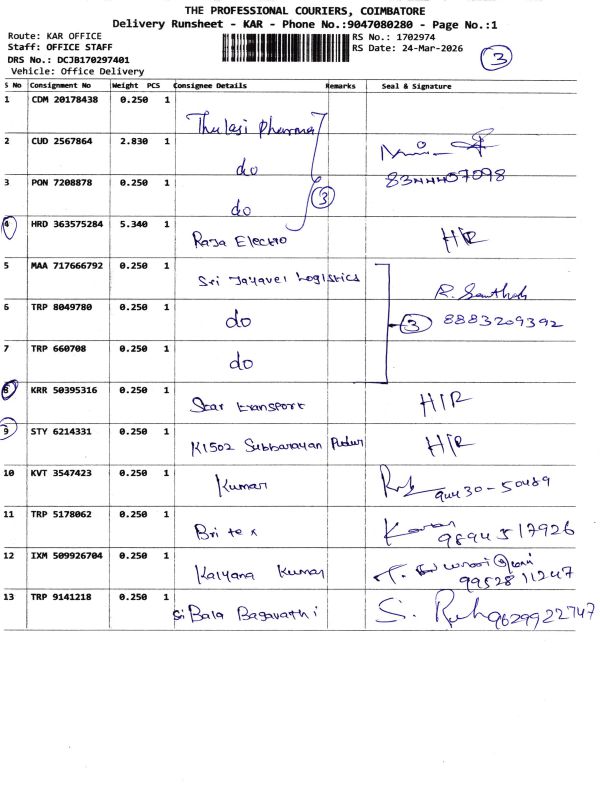 THE PROFESSIONAL COURIERS, COIMBATORE
Delivery Runsheet - KAR - Phone No.:9047080280 - Page No.:1
Route: KAR OFFICE
Staff: OFFICE STAFF
DRS No.: DCJB170297401
Vehicle: Office Delivery
RS No.: 1702974
RS Date: 24-Mar-2026
3
S No Consignment No Weight PCS Consignee Details Remarks Seal & Signature
1 CDM 20178438 0.250 1 Thulasi Pharma
2 CUD 2567864 2.830 1 do
3 PON 7208878 0.250 1 do 3
4 HRD 363575284 5.340 1 Raja Electro H/R
5 MAA 717666792 0.250 1 Sri Jayavel Logistics
6 TRP 8049780 0.250 1 do 3 8883209392
7 TRP 660708 0.250 1 do
8 KRR 50395316 0.250 1 Star transport H/R
9 STY 6214331 0.250 1 K1502 Subbarayan Pudur H/R
10 KVT 3547423 0.250 1 Kumar
11 TRP 5178062 0.250 1 Britex
12 IXM 509926704 0.250 1 Kalyana Kumar 9952811247
13 TRP 9141218 0.250 1 Sri Bala Bagavathi 9629922747